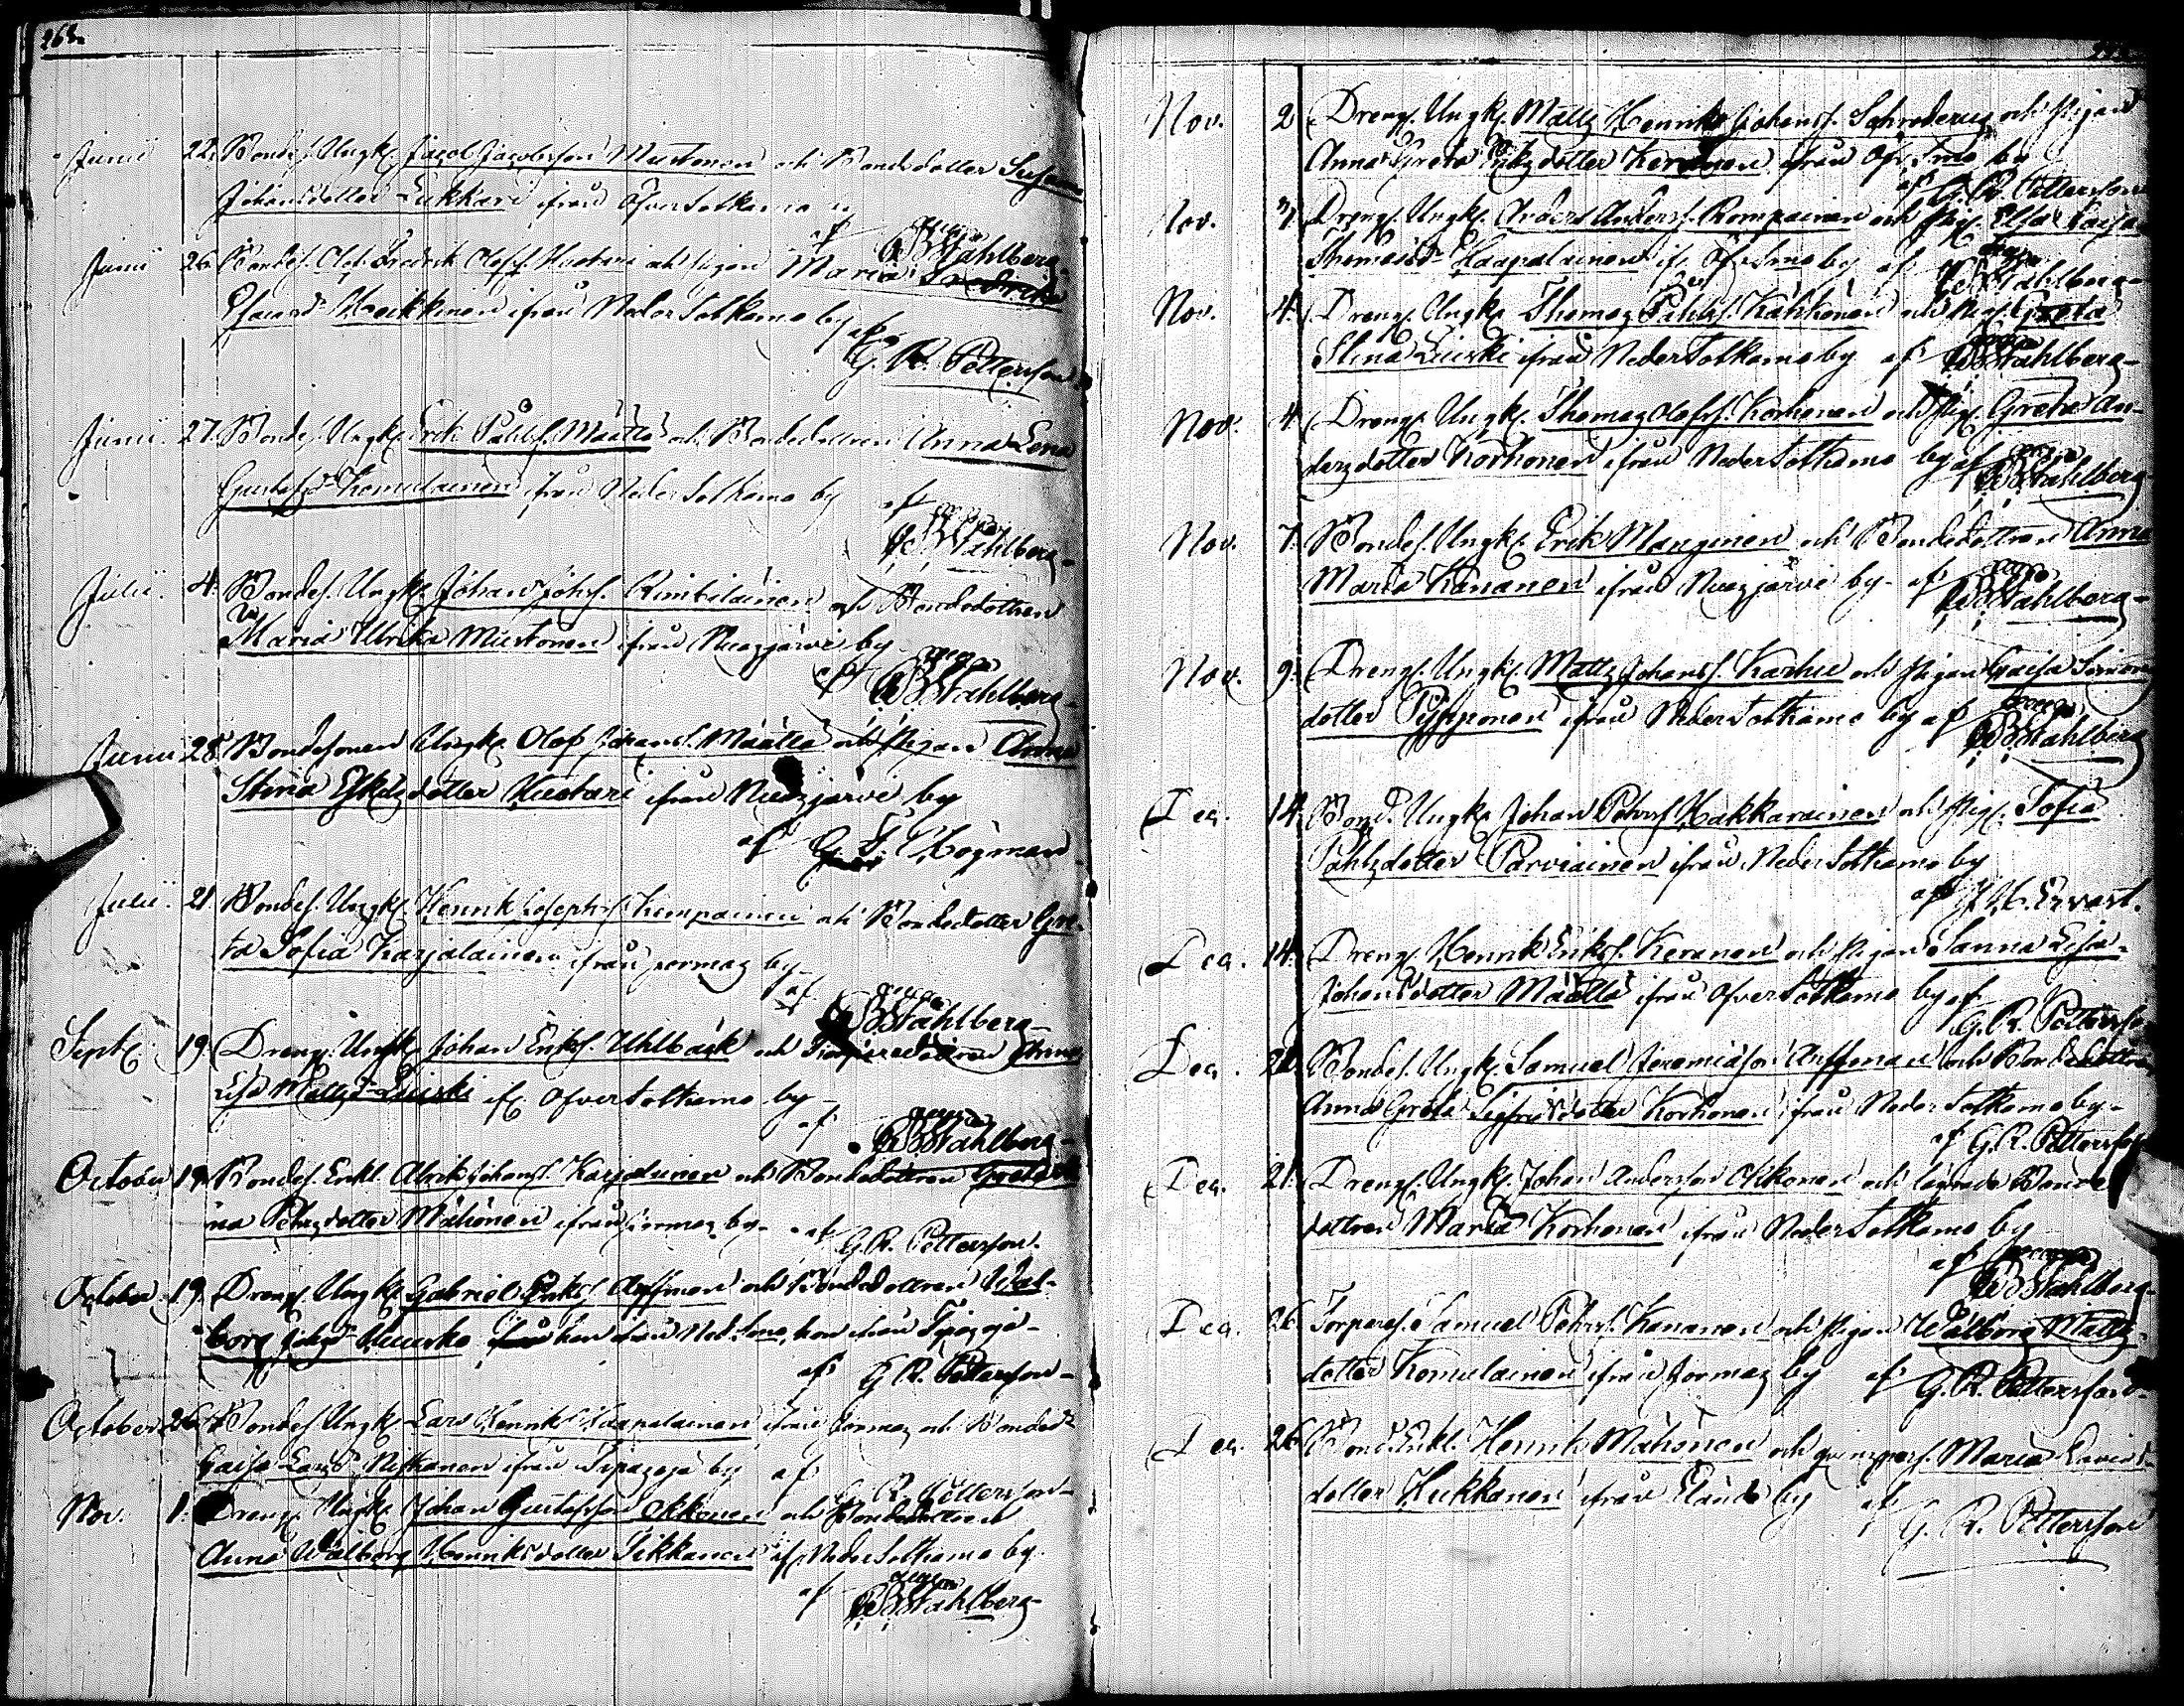 268.
Junii 22. Bondes. Ungk. Jacob Jacobsson Mustonen och Bondedotter Susanna
Johansdotter Lukkari ifrån Ofversotkamo by
af BStåhlberg
Junii 26. Bondes. Fredrik Olofs. Huotari och pigan Maria Fredrika
Heikkinen ifrån NederSotkamo by
af G. R. Pettersson
Junii 27. Bondes. Ungk. Erik Påhls. Määttä och Bondedottren Anna Lena
Gustafsdr Komulainen ifrån NederSotkamo by af
BStåhlberg
Julii 4. Bondes. Ungk. Johan Johs. Rimbiläinen och Bondedottren
Maria Ulrika Mustonen ifrån Nuasjärvi by
af BStåhlberg
Junii 28. Bondesonen Ungk. Olof Johans. Määttä och Pigan Anna
Stina Eskilsdotter Huotari ifrån Nuasjärvi by
af Högman
Julii 21 Bondes. Ungk. Henrik Josephs. Kumpainen och Bondedotter Gre-
ta Sofia Karjalainen ifrån Jormas by
af BStåhlberg
Sept. 19. Dreng. Ungk. Johan Eriks. Uhlbäck och Anna
Lisa Mattsdr Leinski if. OfverSotkamo by
af BStåhlberg
October 19. Bondes. Enkl. Ulrik Johans. Karjalainen och Bondedottren Greta
na Pehrsdotter Mähönen ifrån Jormas by af
G. R. Pettersson.
October 19. Dreng. Ungk. Gabriel Eriks. Auffman och Bondedottren Wal-
borg Johsdr han ifrån Ned. Smo, hon ifrån Tipasoja
af G R. Pettersson
October 26. Bondes. Ungk. Lars Henriks. Haapalainen ifrån Jormas och Bonded.
Caisa Larsdr ifrån Tipasoja by af
G. R. Pettersson
Nov. 1. Dreng. Ungk. Johan Gustafsson Okkonen och Bondedottren
Anna Walborg Henriksdotter Tikkanen if. NederSotkamo by
af BStåhlberg
Nov. 2 Dreng. Ungk. Matts Henrik Johans. Schroderus och Pigan
Anna Greta Keränen ifrån Ofv. Smo by
af G. R. Pettersson
Nov. Dreng. Ungk. Anders Anders. Rompainen och Pig. Elsa Caisa
Thomasdr Haapalainen if. Ofv. Smo by af BStåhlberg
Nov. 4. Dreng. Ungk. Thomas Påhls. Kähkönen och Pig. Greta
Stina Leinski ifrån NederSotkamo by af BStåhlberg
Nov. 4 Dreng. Ungk. Thomas Olofs. Korhonen och Pig. Greta An-
dersdotter Korhonen ifrån NederSotkamo by af
BStåhlberg
Nov. 7. Bondes. Ungk. Erik Manninen och Bondedottren Anna
Maria Kananen ifrån Nuasjärvi by af BStåhlberg
Nov. 9. Dreng. Ungk. Matts Johans. Karhu och Pigan Caisa Simons
dotter Pyssonen ifrån NederSotkamo by af
BStåhlberg
Dec. 14. Bond. Ungk. Johan Pehrs. Hakkarainen och Pig. Sofia
Påhlsdotter Parviainen ifrån NederSotkamo by
af Ervast.
Dec. 14. Dreng. Henrik Eriks. Keränen och Pigan Sanna Lisa
Johansdotter Määttä ifrån OfverSotkamo by af
G. R. Pettersson
Dec. Bondes. Ungk. Samuel Jeremiasson Auffman och Bondedottren
Anna Greta Sigfridsdotter Korhonen ifrån NederSotkamo by
af G. R. Pettersson
Dec. 21. Dreng. Ungk. Johan Andersson Okkonen och Bonde
dottren Maria Korhonen ifrån NederSotkamo by
af BStåhlberg
Dec. 26 Torpares. Samuel Pehrs. Kananen och Pigan Walborg Matts
dotter Komulainen ifrån Jormas by af G. R. Pettersson.
Dec. 26 Bond. Enkl. Henrik Mähönen och Maria Davids
dotter Kukkonen ifrån by af
G. R. Pettersson